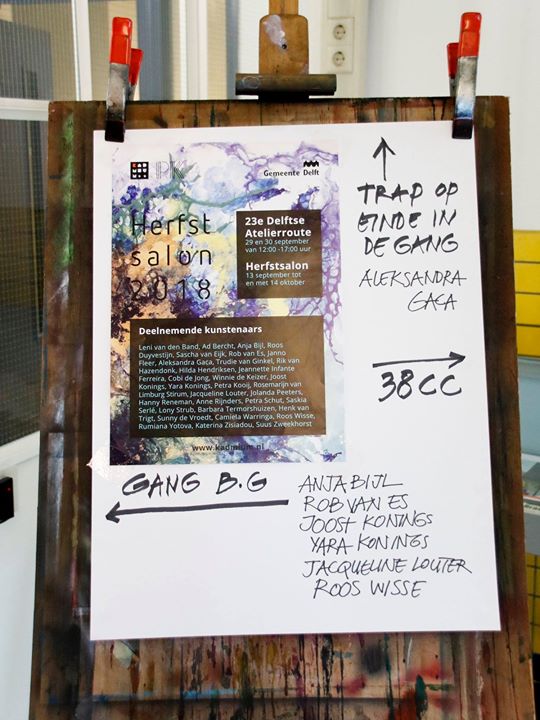 KADMIUM
PK
Gemeente Delft
Herfst
salon
2018
23e Delftse
Atelierroute
29 en 30 september
van 12:00 -17:00 uur
Herfstsalon
13 september tot
en met 14 oktober
Deelnemende kunstenaars
Leni van den Band, Ad Bercht, Anja Bijl, Roos
Duyvestijn, Sascha van Eijk, Rob van Es, Janno
Fleer, Aleksandra Gaca, Trudie van Ginkel, Rik van
Hazendonk, Hilda Hendriksen, Jeannette Infante
Ferreira, Cobi de Jong, Winnie de Keizer, Joost
Konings, Yara Konings, Petra Kooij, Rosemarijn van
Limburg Stirum, Jacqueline Louter, Jolanda Peeters,
Hanny Reneman, Anne Rijnders, Petra Schut, Saskia
Serlé, Lony Strub, Barbara Termorshuizen, Henk van
Trigt, Sunny de Vroedt, Camiela Warringa, Roos Wisse,
Rumiana Yotova, Katerina Zisiadou, Suus Zweekhorst
www.kadmium.nl
TRAP OP
EINDE IN
DE GANG
ALEKSANDRA
GACA
38CC
GANG B.G
ANJA BIJL
ROB VAN ES
JOOST KONINGS
YARA KONINGS
JACQUELINE LOUTER
ROOS WISSE